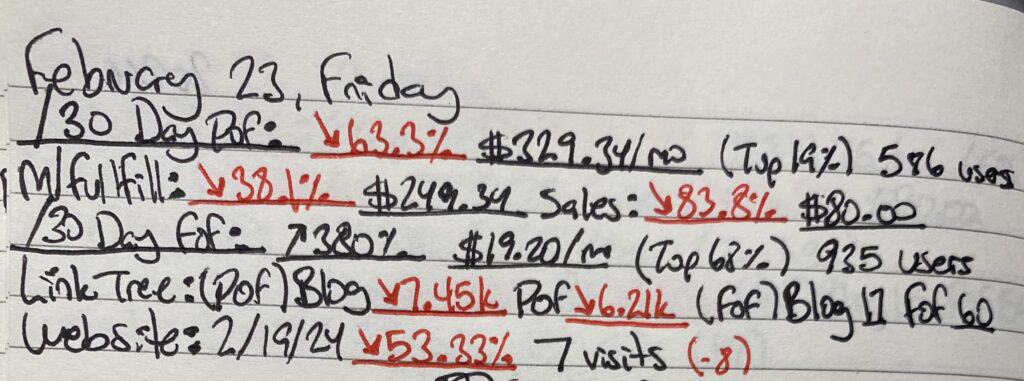 February 23, Friday
/30 Day Pof: ↘63.3% $329.34/mo (Top 19%) 586 users
M/fullfill: ↘38.1% $249.34 Sales: ↘83.8% $80.00
/30 Day fof: ↗380% $19.20/mo (Top 68%) 935 users
Link Tree: (Pof) Blog ↘7.45k Pof ↘6.21k (fof) Blog 17 fof 60
Website: 2/19/24 ↘53.33% 7 visits (-8)